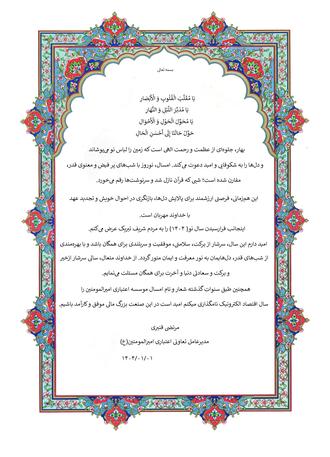 بسمه تعالی
یَا مُقَلِّبَ الْقُلُوبِ وَ الْأَبْصَارِ
یَا مُدَبِّرَ اللَّیْلِ وَ النَّهَارِ
یَا مُحَوِّلَ الْحَوْلِ وَ الْأَحْوَالِ
حَوِّلْ حَالَنَا إِلَی أَحْسَنِ الْحَالِ
بهار، جلوه‌ای از عظمت و رحمت الهی است که زمین را لباس نو می‌پوشاند
و دل‌ها را به شکوفایی و امید دعوت می‌کند. امسال، نوروز با شب‌های پر فیض و معنوی قدر،
مقارن شده است؛ شبی که قرآن نازل شد و سرنوشت‌ها رقم می‌خورد.
این هم‌زمانی، فرصتی ارزشمند برای پالایش دل‌ها، بازنگری در احوال خویش و تجدید عهد
با خداوند مهربان است.
اینجانب فرارسیدن سال نو (۱۴۰۴) را به مردم شریف تبریک عرض می‌کنم.
امید دارم این سال، سرشار از برکت، سلامتی، موفقیت و سربلندی برای همگان باشد و با بهره‌مندی
از شب‌های قدر، دل‌هایمان به نور معرفت و ایمان منور گردد. از خداوند متعال، سالی سرشار ازخیر
و برکت و سعادتی دنیا و آخرت برای همگان مسئلت می‌نمایم.
همچنین طبق سنوات گذشته شعار و نام امسال موسسه اعتباری امیرالمومنین را
سال اقتصاد الکترونیک نامگذاری میکنم امید است در این صنعت بزرگ مالی موفق و کارآمد باشیم.
مرتضی قنبری
مدیرعامل تعاونی اعتباری امیرالمومنین(ع)
۱۴۰۴/۰۱/۰۱